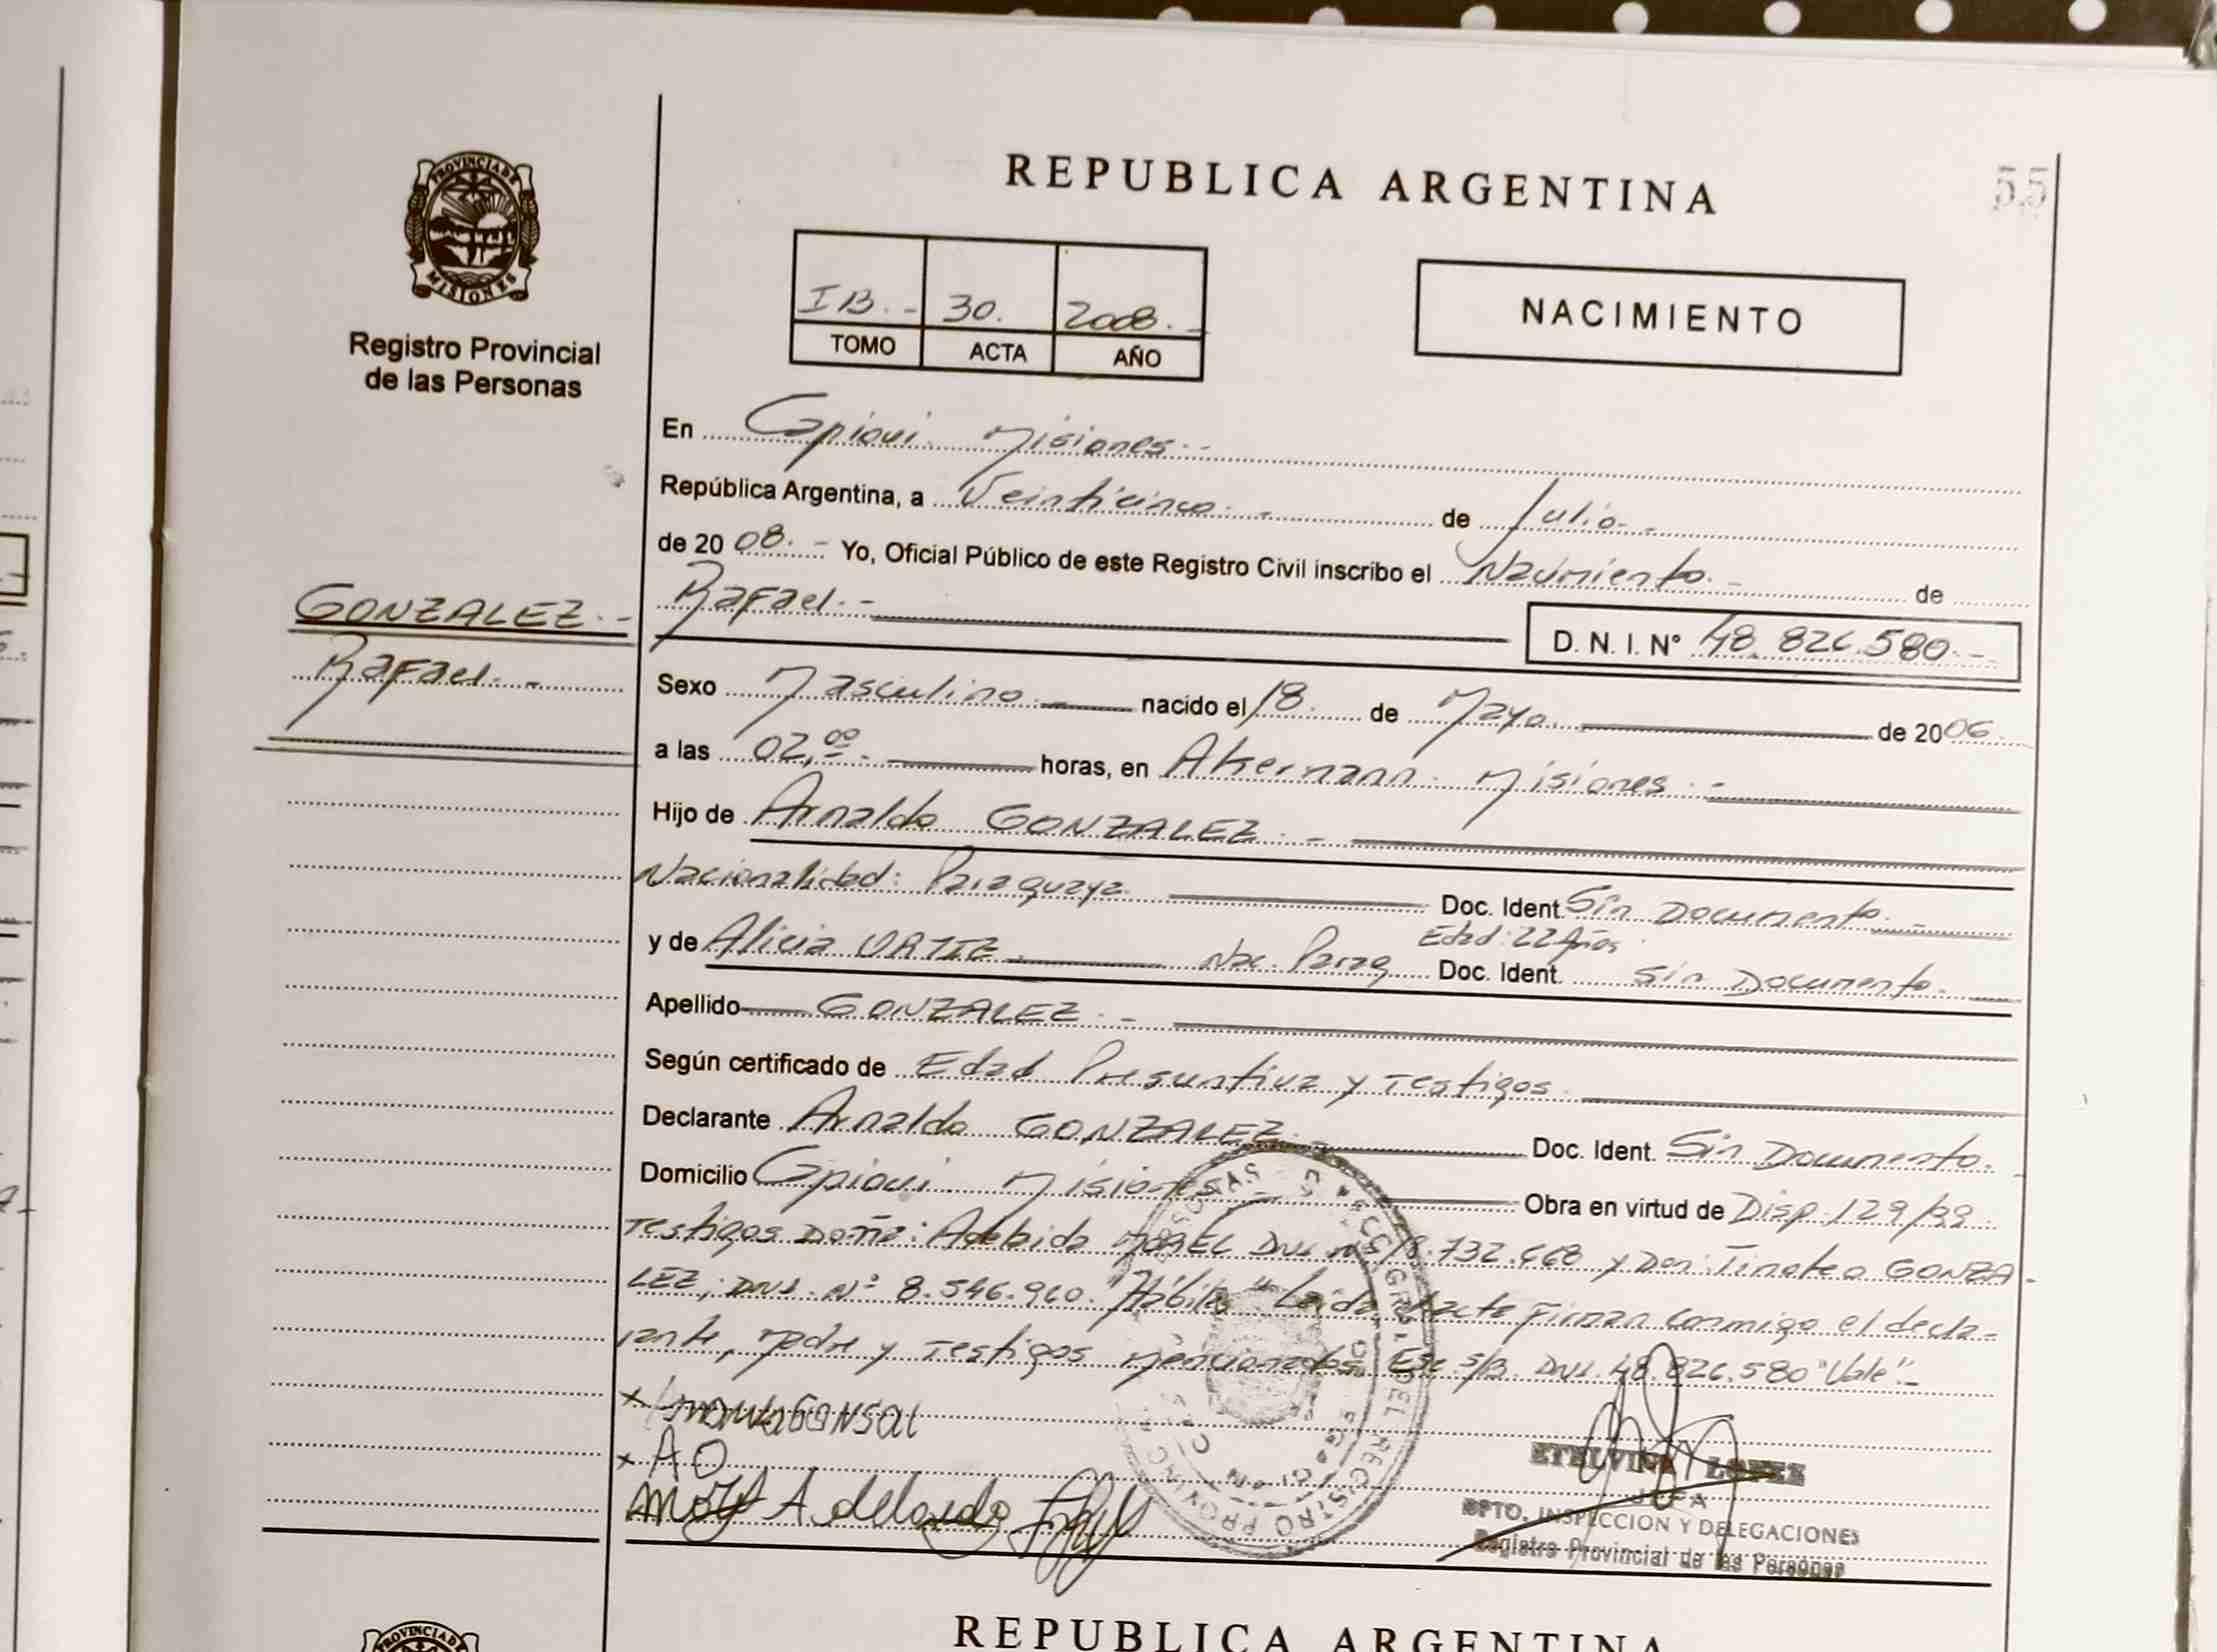 PROVINCIA DE
MISIONES
Registro Provincial
de las Personas
REPUBLICA ARGENTINA
55
IB.- 30. 2008.-
TOMO ACTA AÑO
NACIMIENTO
En Capiovi. Misiones.-
República Argentina, a Veinticinco.- de Julio.-
de 2008.- Yo, Oficial Público de este Registro Civil inscribo el Nacimiento.- de
GONZALEZ.-
Rafael.-
Rafael.-
D. N. I. N° 48.826.580.-
Sexo Masculino.- nacido el 18. de Mayo. de 2006.
a las 02,00. horas, en Akermann. Misiones.-
Hijo de Arnaldo GONZALEZ.-
Nacionalidad: Paraguaya. Doc. Ident. Sin Documento.-
Edad: 22 Años.
y de Alicia ORTIZ. Nac. Parag. Doc. Ident. Sin Documento.
Apellido GONZALEZ.-
Según certificado de Edad Presuntiva y Testigos.
Declarante Arnaldo GONZALEZ.- Doc. Ident. Sin Documento.
Domicilio Capiovi. Misiones.- Obra en virtud de Disp. 129/99.
Testigos Doña: MOREL DNI. Nº 18.732.468 y Don: Timoteo GONZA-
LEZ; DNI. Nº 8.546.960. "Hábiles" Leida el acta Firman conmigo el decla-
rante, madre y testigos mencionados. Esc. s/B. DNI. 48.826.580 "Vale".-
x
x AO
ETELVINA LOPEZ
JEFA
DPTO. INSPECCION Y DELEGACIONES
Registro Provincial de las Personas
REPUBLICA ARGENTINA